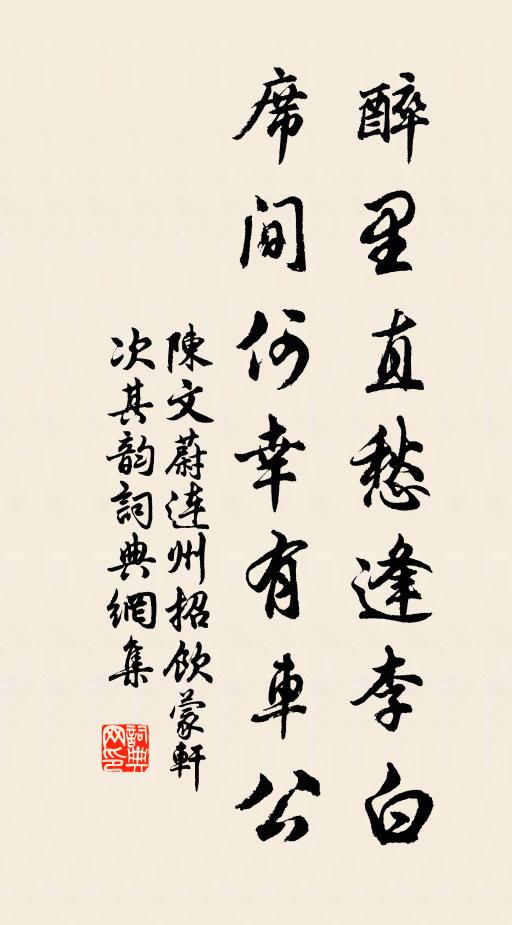 醉里直愁逢李白
席間何幸有車公
陳文蔚連州招飲蒙軒
次其韵詞典網集
詞典网印